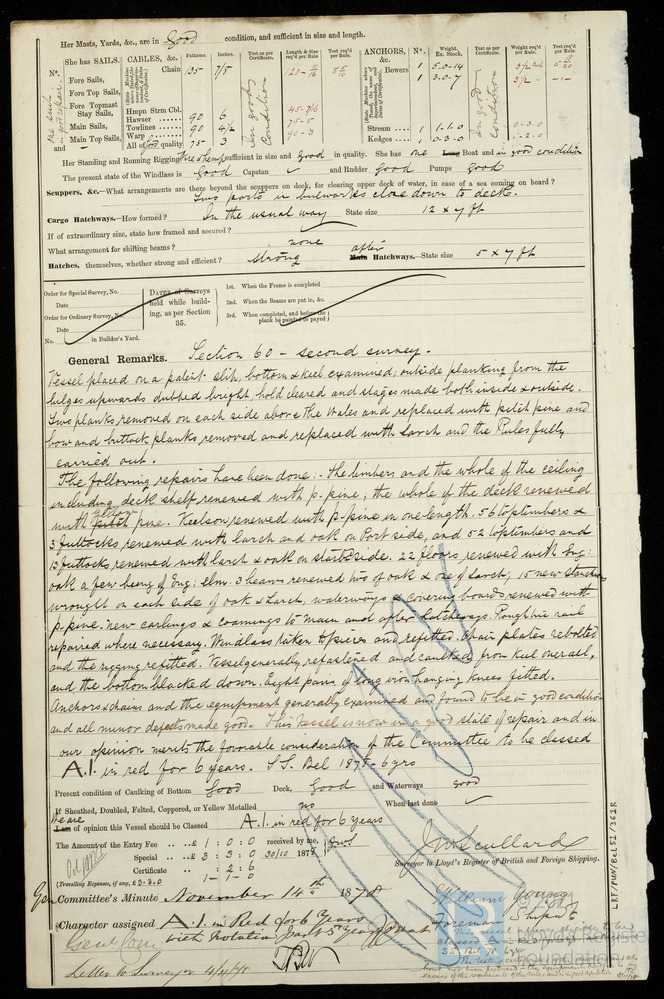 Her Masts, Yards, &c., are in Good condition, and sufficient in size and length.
She has SAILS. CABLES, &c. Fathoms. Inches. Test as per Certificate. Length & Size req'd per Rule. Test req'd per Rule. ANCHORS, &c. Nº. Weight. Ex. Stock. Test as per Certificate. Weight req'd per Rule. Test req'd per Rule.
Nº.
Fore Sails, Chain 135 7/8 Bowers 1 5.0.14
1 3.0.7
Fore Top Sails,
Fore Topmast Stay Sails,
Hmpn Strm Cbl. 45-7/16
Hawser 90 6 75-5
Main Sails, Towlines 90 4/2 90-3 Stream 1 1.1.0 0.3.0
Main Top Sails, Warp 75 3 Kedges 1 0.3.0 1.2.0
and All of Good quality
In good condition In good condition
Her Standing and Running Rigging Wire & hemp sufficient in size and Good in quality. She has one Long Boat and in good condition
The present state of the Windlass is Good Capstan and Rudder Good Pumps Good
Scuppers, &c.—What arrangements are there beyond the scuppers on deck, for clearing upper deck of water, in case of a sea coming on board?
Two ports in bulwarks close down to deck.
Cargo Hatchways.—How formed? In the usual way State size 12 x 7 ft
If of extraordinary size, state how framed and secured?
What arrangement for shifting beams? none
Hatches, themselves, whether strong and efficient? strong after Main Hatchways.—State size 5 x 7 ft
Order for Special Survey, No. DATES of Surveys held while building, as per Section 35. 1st. When the Frame is completed
Date
Order for Ordinary Survey, No. 2nd. When the Beams are put in, &c.
Date
No. in Builder's Yard. 3rd. When completed, and before the plank be painted or payed
General Remarks. Section 60 - second survey.
Vessel placed on a patent slip, bottom & keel examined; outside planking from the
bulges upwards dubbed bright, hold cleared and stages made both inside & outside.
Two planks removed on each side above the Wales and replaced with pitch pine and
bow and buttock planks removed and replaced with Larch and the Rules fully
carried out.
The following repairs have been done:- The limbers and the whole of the ceiling
including deck shelf renewed with p-pine, the whole of the deck renewed
with pitch yellow pine. Keelson renewed with p-pine in one length. 56 toptimbers &
3 futtocks renewed with larch and oak on Port side, and 52 toptimbers and
13 futtocks renewed with larch & oak on starbd side. 22 floors renewed with Eng:
oak a few being of Eng: elm. 3 beams renewed two of oak & one of Larch, 15 new stanchions
wrought on each side of oak & Larch, waterways & covering boards renewed with
p-pine. New carlings & coamings to main and after hatchways. Rough tree rail
repaired where necessary. Windlass taken to pieces and refitted. Chain plates rebolted
and the rigging refitted. Vessel generally refastened and caulked from keel overall,
and the bottom blacked down. Eight pairs of long iron hanging knees fitted.
Anchors & chains and the equipment generally examined and found to be in good condition
and all minor defects made good. This Vessel is now in a good state of repair and in
our opinion merits the favorable consideration of the Committee to be classed
A.1. in red for 6 years. S.S. Bel 1878-6 yrs
Present condition of Caulking of Bottom Good Deck, Good and Waterways good
If Sheathed, Doubled, Felted, Coppered, or Yellow Metalled no When last done
We are
I am of opinion this Vessel should be Classed A.1. in red for 6 years
The Amount of the Entry Fee ... £ 1 : 0 : 0 received by me,
Special ... £ 3 : 3 : 0 30/10 1878
Certificate ... : 2 : 6
(Travelling Expenses, if any, £3.3.0) 1-1-0
J W Scullard
Surveyor to Lloyd's Register of British and Foreign Shipping.
Committee's Minute November 14th 1878
William Young
Foreman Shipwt
Character assigned A.1. in Red for 6 Years
with Notation
Letter to Surveyor 4/11/78
LRF/PUN/BEL51/361R
Lloyd's Register
Foundation